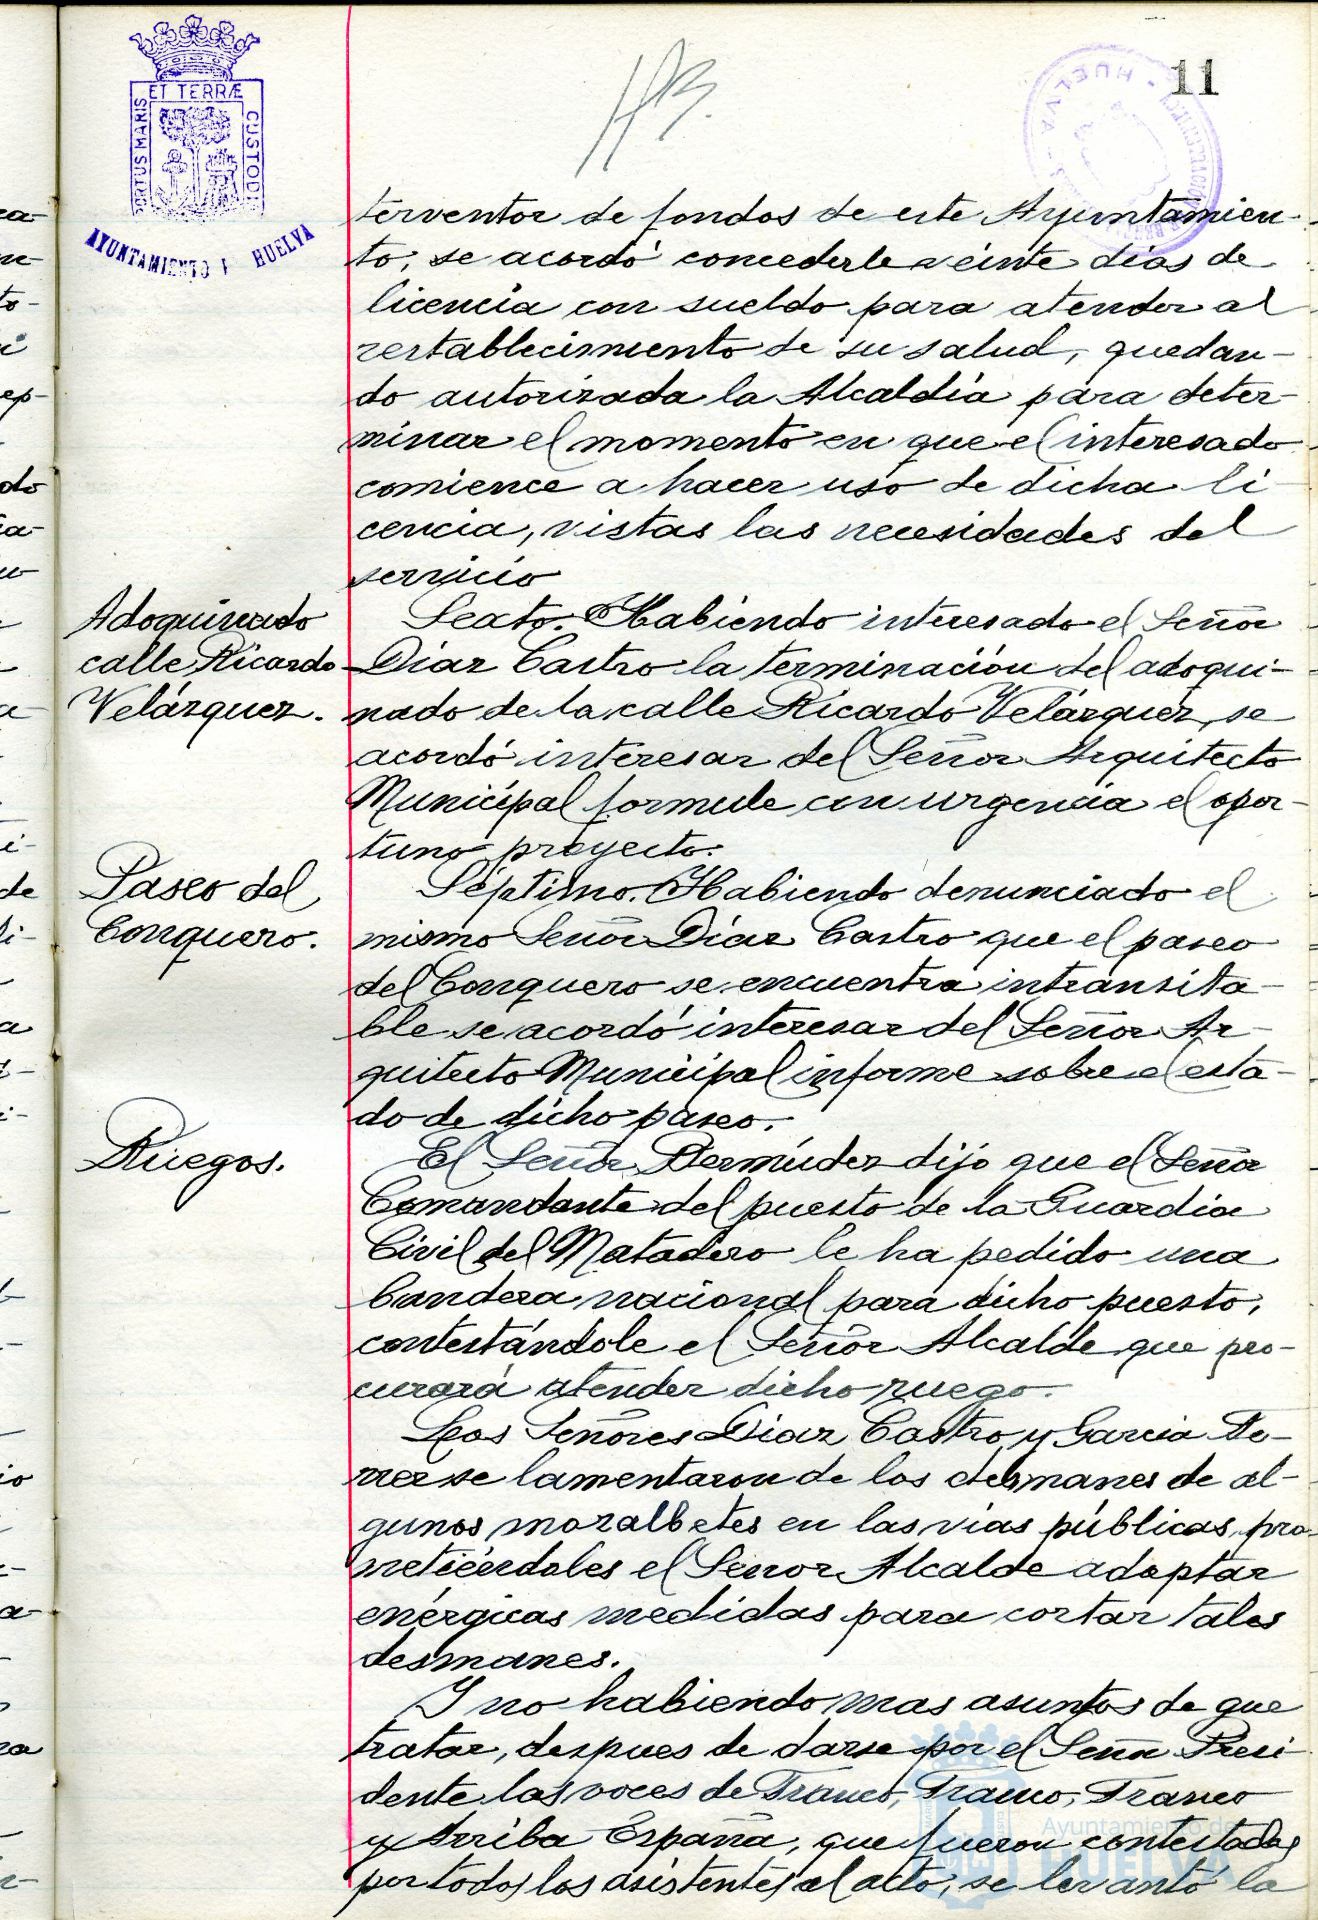 11
ET TERRÆ
PORTUS MARIS
CUSTODI
AYUNTAMIENTO HUELVA
HUELVA
terventor de fondos de este Ayuntamien-
to, se acordó concederle veinte dias de
licencia con sueldo para atender al
restablecimiento de su salud, quedan-
do autorizada la Alcaldía para deter-
minar el momento en que el interesado
comience a hacer uso de dicha li-
cencia, vistas las necesidades del
servicio
Adoquinado
calle Ricardo
Velázquez.
Sexto. Habiendo interesado el Señor
Díaz Castro la terminación del adoqui-
nado de la calle Ricardo Velázquez, se
acordó interesar del Señor Arquitecto
Municipal formule con urgencia el opor-
tuno proyecto.
Paseo del
Conquero.
Séptimo. Habiendo denunciado el
mismo Señor Díaz Castro que el paseo
del Conquero se encuentra intransita-
ble se acordó interesar del Señor Ar-
quitecto Municipal informe sobre el esta-
do de dicho paseo.
Ruegos.
El Señor Bermúdez dijo que el Señor
Comandante del puesto de la Guardia
Civil del Matadero le ha pedido una
bandera nacional para dicho puesto,
contestándole el Señor Alcalde que pro-
curará atender dicho ruego.
Los Señores Díaz Castro y García
se lamentaron de los desmanes de al-
gunos moralbetes en las vías públicas, pro-
metiéndoles el Señor Alcalde adoptar
enérgicas medidas para cortar tales
desmanes.
Y no habiendo mas asuntos de que
tratar, despues de darse por el Señor Presi-
dente las voces de Franco, Franco, Franco
y Arriba España, que fueron contestadas
por todos los asistentes al acto, se levantó la
Ayuntamiento de
HUELVA